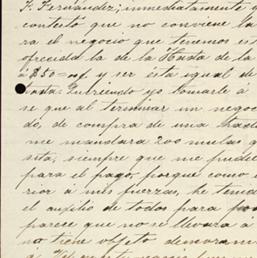 F. Fernandez; inmediatamente y
contesto que no conviene la
ra el negocio que tenemos es
ofrecida la de la Hasta de la
á $50=m/. y ser esta igual de
yo tomarle á
se que al terminar un negoc
do, de compra de una Hasta
me mandara 200 mulas q
sita; siempre que me puede
para el pago, porque como e
rior á mis fuerzas, he tenid
el auxilio de todos para po
parece que no se llevara á
no tiene objeto demoram